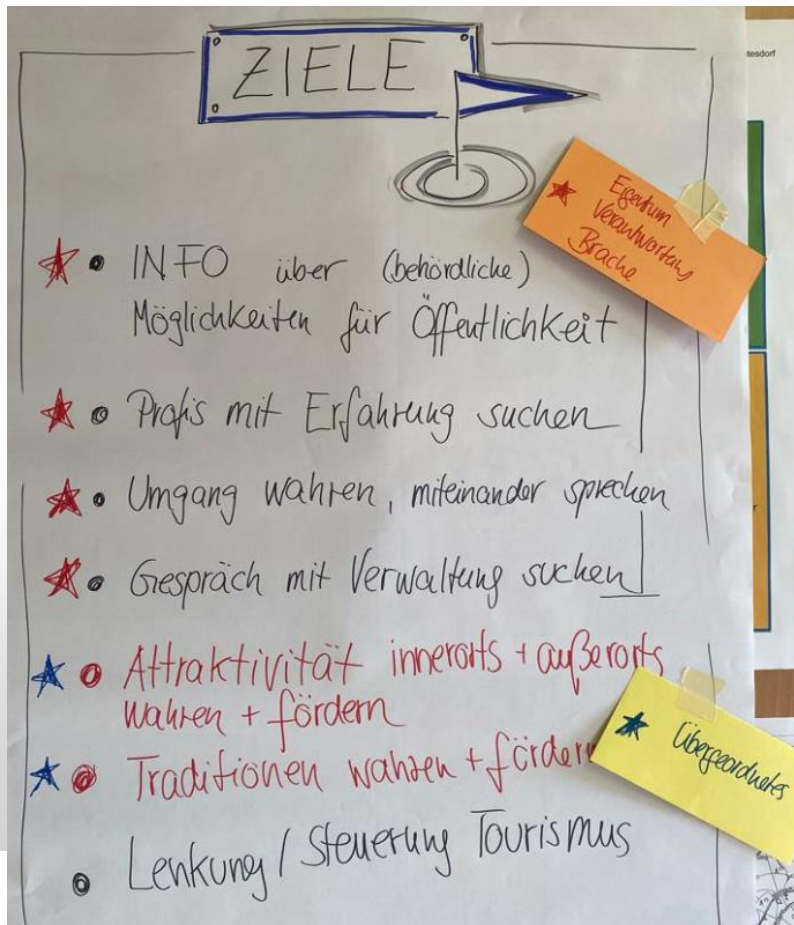 ZIELE
tesdorf
Eigentum
Verantwortung
Brache
• INFO über (behördliche)
Möglichkeiten für Öffentlichkeit
• Profis mit Erfahrung suchen
• Umgang wahren, miteinander sprechen
• Gespräch mit Verwaltung suchen
• Attraktivität innerorts + außerorts
wahren + fördern
• Traditionen wahren + fördern
Übergeordnetes
• Lenkung / Steuerung Tourismus